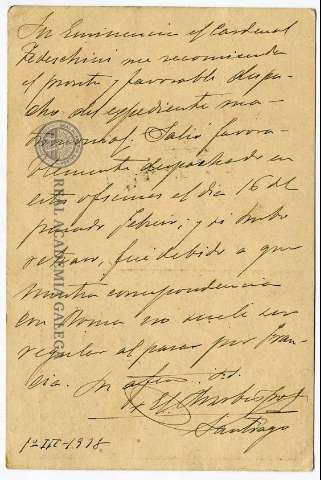 Su Eminencia el Cardenal
Tedeschini me recomienda
el pronto y favorable despa-
cho del expediente ma-
trimonial. Salió favora-
blemente despachado en
esta oficinas el día 16 del
pasado Febrero; y si hubo
retraso, fué debido a que
nuestra correspondencia
con Roma no suele ser
regular al pasar por Fran-
cia. Su affmo.
† El Arzobispo de
Santiago
1º III-1938
REAL ACADEMIA GALEGA